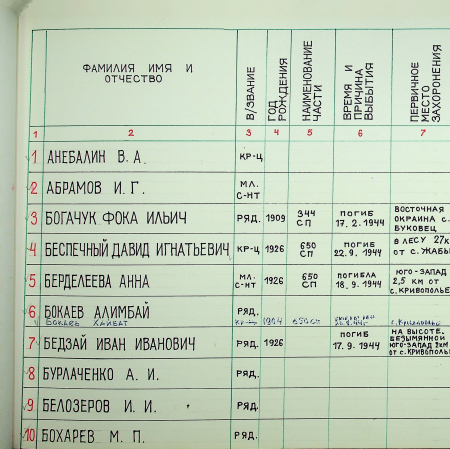 ФАМИЛИЯ ИМЯ И ОТЧЕСТВО
В/ЗВАНИЕ
ГОД РОЖДЕНИЯ
НАИМЕНОВАНИЕ ЧАСТИ
ВРЕМЯ И ПРИЧИНА ВЫБЫТИЯ
ПЕРВИЧНОЕ МЕСТО ЗАХОРОНЕНИЯ
1 2 3 4 5 6 7
1 АНЕБАЛИН В. А. КР-Ц
2 АБРАМОВ И. Г. МЛ. С-НТ
3 БОГАЧУК ФОКА ИЛЬИЧ РЯД. 1909 344 СП ПОГИБ 17. 2. 1944 ВОСТОЧНАЯ ОКРАИНА С. БУКОВЕЦ
4 БЕСПЕЧНЫЙ ДАВИД ИГНАТЬЕВИЧ КР-Ц 1926 650 СП ПОГИБ 22. 9. 1944 В ЛЕСУ 27К ОТ С. ЖАБЫ
5 БЕРДЕЛЕЕВА АННА МЛ. С-НТ 1926 650 СП ПОГИБЛА 18. 9. 1944 ЮГО-ЗАПАД 2,5 КМ ОТ С. КРИВОПОЛЬЕ
6 БОКАЕВ АЛИМБАЙ РЯД.
БОКАЕВ ХАЙБАТ КР-Ц 1904 650 СП
7 БЕДЗАЙ ИВАН ИВАНОВИЧ РЯД. 1926 ПОГИБ 17. 9. 1944 НА ВЫСОТЕ. БЕЗЫМЯННОЙ ЮГО-ЗАПАД 2КМ ОТ С. КРИВОПОЛ
8 БУРЛАЧЕНКО А. И. РЯД.
9 БЕЛОЗЕРОВ И. И. РЯД.
10 БОХАРЕВ М. П. РЯД.